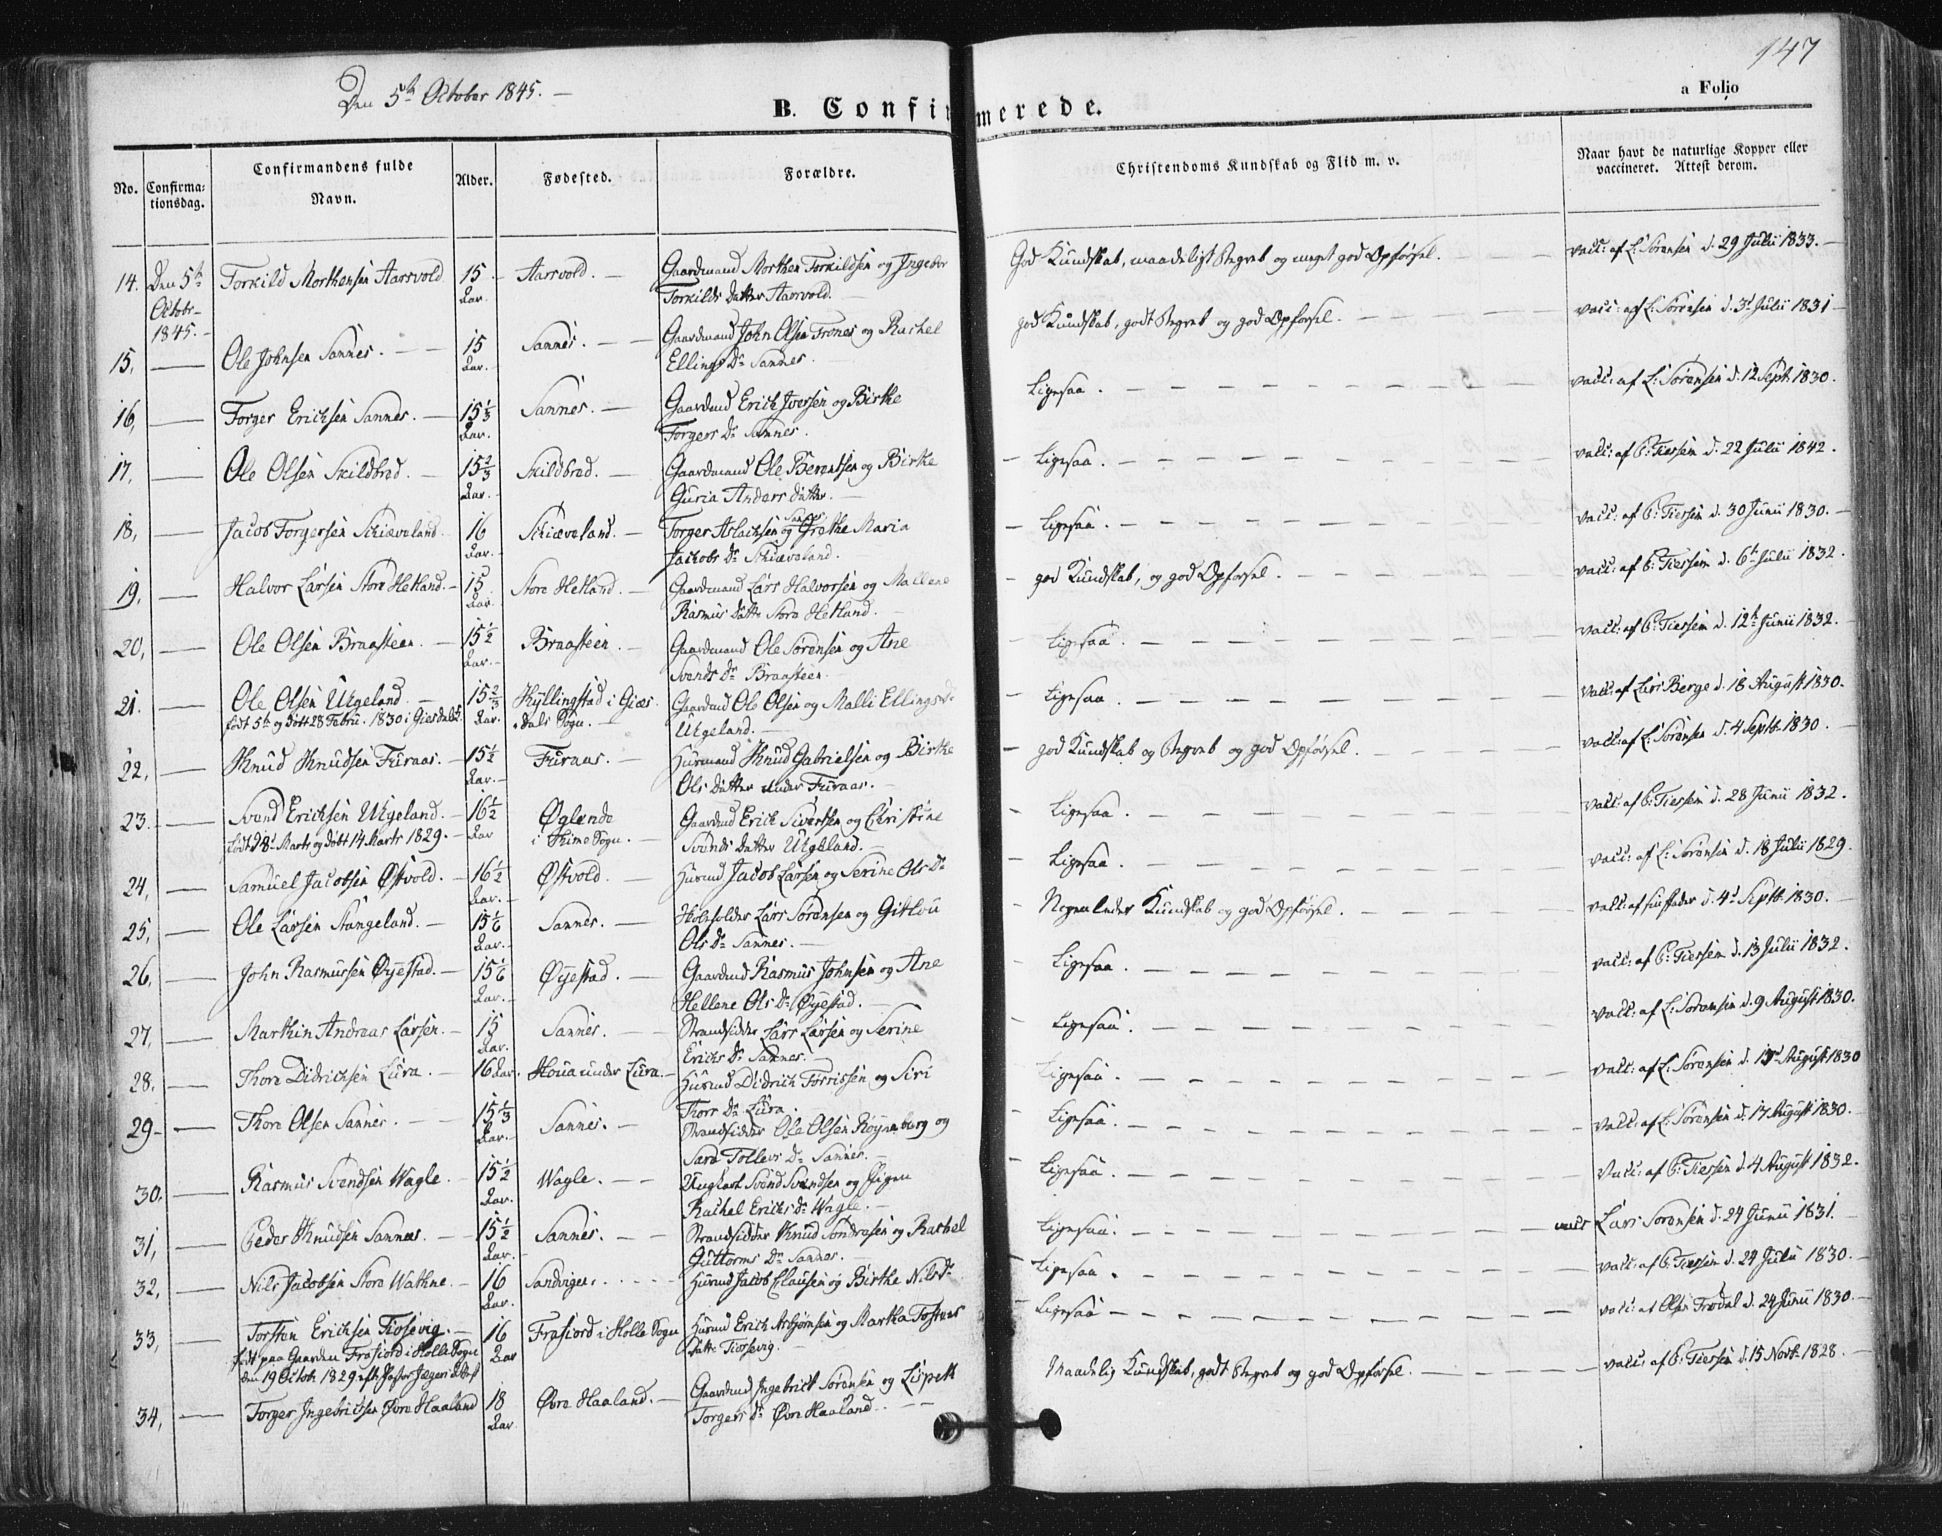 Den 5te October 1845.
147
B. Confirmerede.
a Folio
No.
Confirma-
tionsdag.
Confirmandens fulde
Navn.
Alder.
Fødested.
Forældre.
Christendoms Kundskab og Flid m. v.
Naar havt de naturlige Kopper eller
vaccineret. Attest derom.
14. Den 5te Octobr 1845. Torkild Morthensen Aarsvold 15 Aar. Aarsvold. Gaardmand Morthen Torkildsen og Ingebor
Torkilds Datter Aarsvold. God Kundskab, maadeligt Begreb og meget god Opførsel. vacc: af L: Sørensen d. 29 Julii 1833.
15, Ole Johnsen Sannes. 15 Aar. Sannes. Gaardmand John Olsen Trones og Rachel
Ellings Dr Sannes. god Kundskab, godt Begreb og god Opførsel. vacc: af L: Sørensen d. 3d Julii 1831
16, Torger Erichsen Sannes. 15 1/3 Aar. Sannes. Gaardmd Erich Iversen og Birthe
Torgers Dr Sannes. Ligesaa. vacc: af L: Sørensen d. 12 Sept. 1830.
17, Ole Olsen Skildbred. 15 2/3 Aar. Skildbred. Gaardmand Ole Berentsen og Birthe
Guria Anders Datter. Ligesaa. vacc: af C: Tiersen d. 22 Julii 1842.
18, Jacob Torgersen Schiæveland. 16 Aar. Schiæveland. Torger Aslachsen Sannes og Grethe Maria
Jachobs Dr Schiæveland. Ligesaa. vacc: af C: Tiersen d. 30 Junii 1830.
19, Halvor Larsen Store Hetland. 15 Aar. Store Hetland. Gaardmand Lars Halvorsen og Mallene
Rasmus Datter Store Hetland. god Kundskab, og god Opførsel. vacc: af C: Tiersen d. 6te Julii 1832.
20, Ole Olsen Braasteen. 15 1/2 Aar. Braasteen. Gaardmand Ole Sørensen og Ane
Svends Dr Braasteen. Ligesaa. vacc: af C: Tiersen d. 12te Junii 1832.
21. Ole Olsen Uegeland.
født 5te og døbt 28 Febru. 1830 i Giesdahl 15 2/3 Aar. Kyllingstad i Giæs-
dals Sogn. Gaardmd Ole Olsen og Malli Ellingsdr
Uegeland. Ligesaa. vacc: af Lars Berge d. 18 August 1830.
22, Knud Knudsen Furaas. 15 1/2 Aar. Furaas. Huusmand Knud Gabrielsen og Birthe
Ols Datter under Furaas. god Kundskab og Begreb og god Opførsel. vacc: af L: Sørensen d. 4 Septb. 1830.
23. Svend Erichsen Uegeland.
født d 8de Marts og døbt 14 Marts 1829. 16 1/2 Aar Øglende
i Thime Sogn. Gaardmd Erich Sivertsen og Christine
Svends Datter Uegeland. Ligesaa. vacc: af C: Tiersen d. 28 Junii 1832.
24, Samuel Jacobsen Østvold. 16 1/2 Aar. Østvold. Huusmd Jacob Larsen og Serine Ols Dr Ligesaa. vacc: af L: Sørensen d. 18 Julii 1829.
25, Ole Larsen Stangeland. 15 1/6 Aar. Sannes. Lars Sørensen og Gitlou
Ols Dr Sannes. Nogenledes Kundskab og god Opførsel. vacc: af sin fader d. 4de Septb. 1830.
26, John Rasmussen Øyestad. 15 1/6 Aar. Øyestad. Gaardmd Rasmus Johnsen og Ane
Hellene Ols Dr Øyestad. Ligesaa. vacc: af C: Tiersen d. 13 Julii 1832.
27, Marthin Andreas Larsen. 15 Aar. Sannes. Strandsidder Lars Larsen og Serine
Erichs Dr Sannes. Ligesaa. vacc: af L: Sørensen d. 9 August 1830.
28. Thore Didrichsen Lura. 16 Aar. Houa under Lura. Huusmd Didrich Torrissen og Siri
Thors Dr Lura. Ligesaa. vacc: af L: Sørensen d. 15 August 1830
29. Thore Olsen Sannes. 15 1/3 Aar. Sannes. Strandsidder Ole Olsen Røyneberg og
Sara Tollevs Dr Sannes. Ligesaa. vacc: af L: Sørensen d. 17 August 1830.
30. Rasmus Svendsen Wagle. 15 1/2 Aar. Wagle. Ungkarl Svend Svendsen og Pigen
Rachel Erichs Dr Wagle. Ligesaa. Vacc: af C: Tiersen d. 4 August 1832.
31, Peder Knudsen Sannes. 15 1/2 Aar. Sannes. Strandsidder Knud Søndresen og Rachel
Guttorms Dr Sannes. Ligesaa. vacc Lars Sørensen d. 24 Junii 1831.
32, Nils Jacobsen Store Wathne. 16 Aar. Sandvigen. Huusmd Jacob Clausen og Birthe Nilsdr Ligesaa. vacc: af C: Tiersen d. 24 Julii 1830.
33, Torsten Erichsen Tiosevig.
født paa Gaarden Frafiord i Hølle Sogn
den 19 Octob. 1829 16 Aar Frafiord i Hølle Sogn Huusmd Erich Asbjørnsen og Martha Tostens
Datter Tiosevig. Ligesaa vacc: af Olsen Trædal d. 24 Junii 1830.
34, Torger Ingebrictsen Øvre Haaland 18 Aar Øvre Haaland. Gaardmd Ingebrict Sørensen og Lispeth
Torgers Dr Øvre Haaland. Maadelig Kundskab, godt Begreb og god Opførsel. vacc: af C: Tiersen d. 15 Novb. 1828.